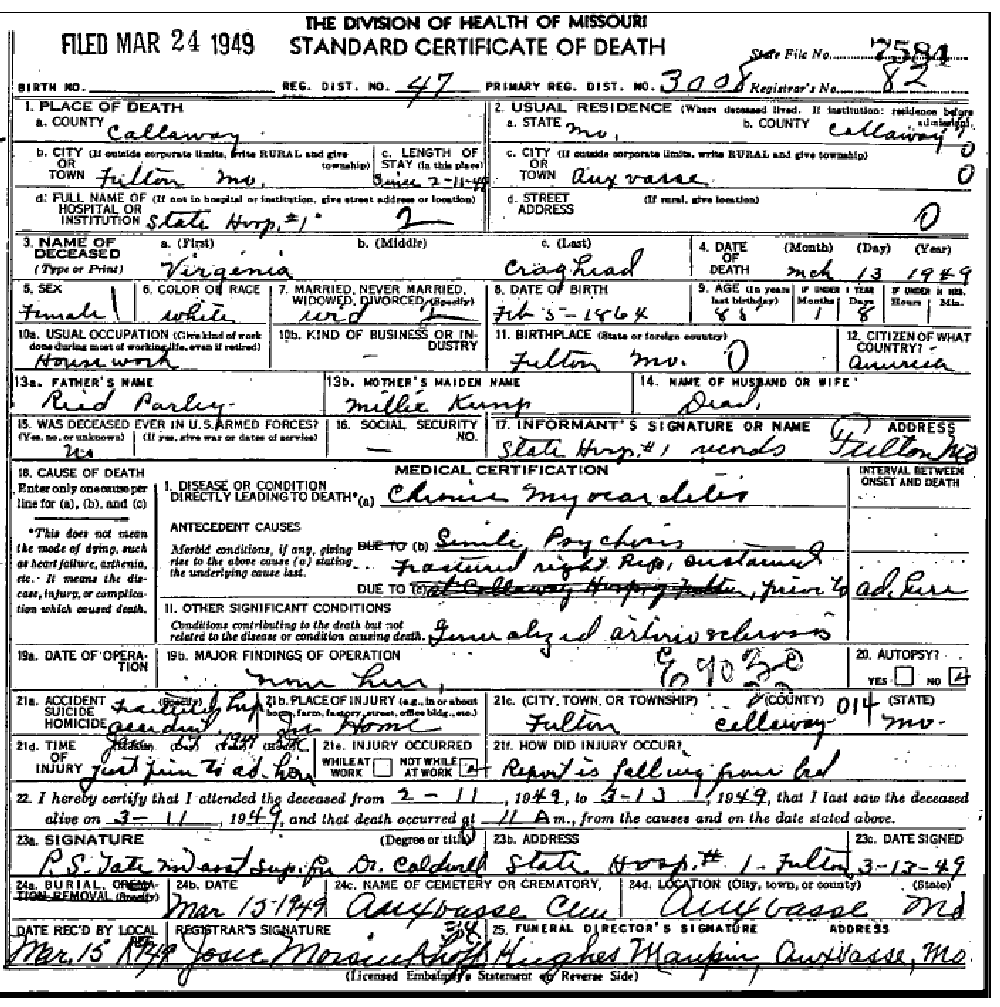 THE DIVISION OF HEALTH OF MISSOURI
FILED MAR 24 1949 STANDARD CERTIFICATE OF DEATH
State File No. 7581
BIRTH NO. REG. DIST. NO. 47 PRIMARY REG. DIST. NO. 3008 Registrar's No. 82
1. PLACE OF DEATH
a. COUNTY Callaway
2. USUAL RESIDENCE (Where deceased lived. If institution: residence before admission)
a. STATE Mo. b. COUNTY Callaway 0
b. CITY (If outside corporate limits, write RURAL and give township)
OR
TOWN Fulton Mo.
c. LENGTH OF STAY (in this place)
Since 2-11-49
c. CITY (If outside corporate limits, write RURAL and give township) 0
OR
TOWN Auxvasse 0
d. FULL NAME OF (If not in hospital or institution, give street address or location)
HOSPITAL OR
INSTITUTION State Hosp. #1 2
d. STREET (If rural, give location)
ADDRESS 0
3. NAME OF DECEASED
(Type or Print)
a. (First) b. (Middle) c. (Last)
Virginia Craghead
4. DATE OF DEATH (Month) (Day) (Year)
Mch 13 1949
5. SEX
Female 1
6. COLOR OR RACE
white
7. MARRIED, NEVER MARRIED, WIDOWED, DIVORCED (Specify)
wid 2
8. DATE OF BIRTH
Feb 5-1864
9. AGE (In years last birthday) IF UNDER 1 YEAR Months Days IF UNDER 24 HRS. Hours Min.
85 1 8
10a. USUAL OCCUPATION (Give kind of work done during most of working life, even if retired)
Housework
10b. KIND OF BUSINESS OR INDUSTRY
—
11. BIRTHPLACE (State or foreign country)
Fulton Mo. 0
12. CITIZEN OF WHAT COUNTRY?
America
13a. FATHER'S NAME
Ried
13b. MOTHER'S MAIDEN NAME
Millie Kemp
14. NAME OF HUSBAND OR WIFE
Dead.
15. WAS DECEASED EVER IN U.S. ARMED FORCES?
(Yes, no, or unknown) (If yes, give war or dates of service)
no
16. SOCIAL SECURITY NO.
—
17. INFORMANT'S SIGNATURE OR NAME ADDRESS
State Hosp. #1 records Fulton Mo
18. CAUSE OF DEATH
Enter only one cause per line for (a), (b), and (c)
*This does not mean the mode of dying, such as heart failure, asthenia, etc. It means the disease, injury, or complication which caused death.
MEDICAL CERTIFICATION
INTERVAL BETWEEN ONSET AND DEATH
I. DISEASE OR CONDITION DIRECTLY LEADING TO DEATH* (a) Chronic Myocarditis
ANTECEDENT CAUSES
Morbid conditions, if any, giving rise to the above cause (a) stating the underlying cause last.
DUE TO (b) Senile Psychosis
Fractured right hip, sustained
DUE TO (c) at Callaway Hosp, Fulton, prior to ad. here
II. OTHER SIGNIFICANT CONDITIONS
Conditions contributing to the death but not related to the disease or condition causing death. Generalized arteriosclerosis
19a. DATE OF OPERATION
19b. MAJOR FINDINGS OF OPERATION
none here,
20. AUTOPSY?
YES NO
21a. ACCIDENT SUICIDE HOMICIDE (Specify)
accident
21b. PLACE OF INJURY (e.g., in or about home, farm, factory, street, office bldg., etc.)
In Home
21c. (CITY, TOWN, OR TOWNSHIP) (COUNTY) (STATE)
Fulton Callaway 014 Mo.
21d. TIME OF INJURY (Month) (Day) (Year) (Hour)
just prior to ad. here
21e. INJURY OCCURRED
WHILE AT WORK NOT WHILE AT WORK
21f. HOW DID INJURY OCCUR?
Report is falling from bed
22. I hereby certify that I attended the deceased from 2-11, 1949, to 3-13, 1949, that I last saw the deceased
alive on 3-11, 1949, and that death occurred at 11 A m., from the causes and on the date stated above.
23a. SIGNATURE (Degree or title)
P.S. Tate MD asst sup. for Dr. Caldwell
23b. ADDRESS
State Hosp. #1 - Fulton
23c. DATE SIGNED
3-13-49
24a. BURIAL, CREMATION, REMOVAL (Specify)
24b. DATE
Mar 15-1949
24c. NAME OF CEMETERY OR CREMATORY
Auxvasse Cem
24d. LOCATION (City, town, or county) (State)
Auxvasse Mo
DATE REC'D BY LOCAL REG.
Mar. 15 1949
REGISTRAR'S SIGNATURE
Josie
25. FUNERAL DIRECTOR'S SIGNATURE ADDRESS
Hughes Maupin, Auxvasse, Mo.
(Licensed Embalmer's Statement on Reverse Side)